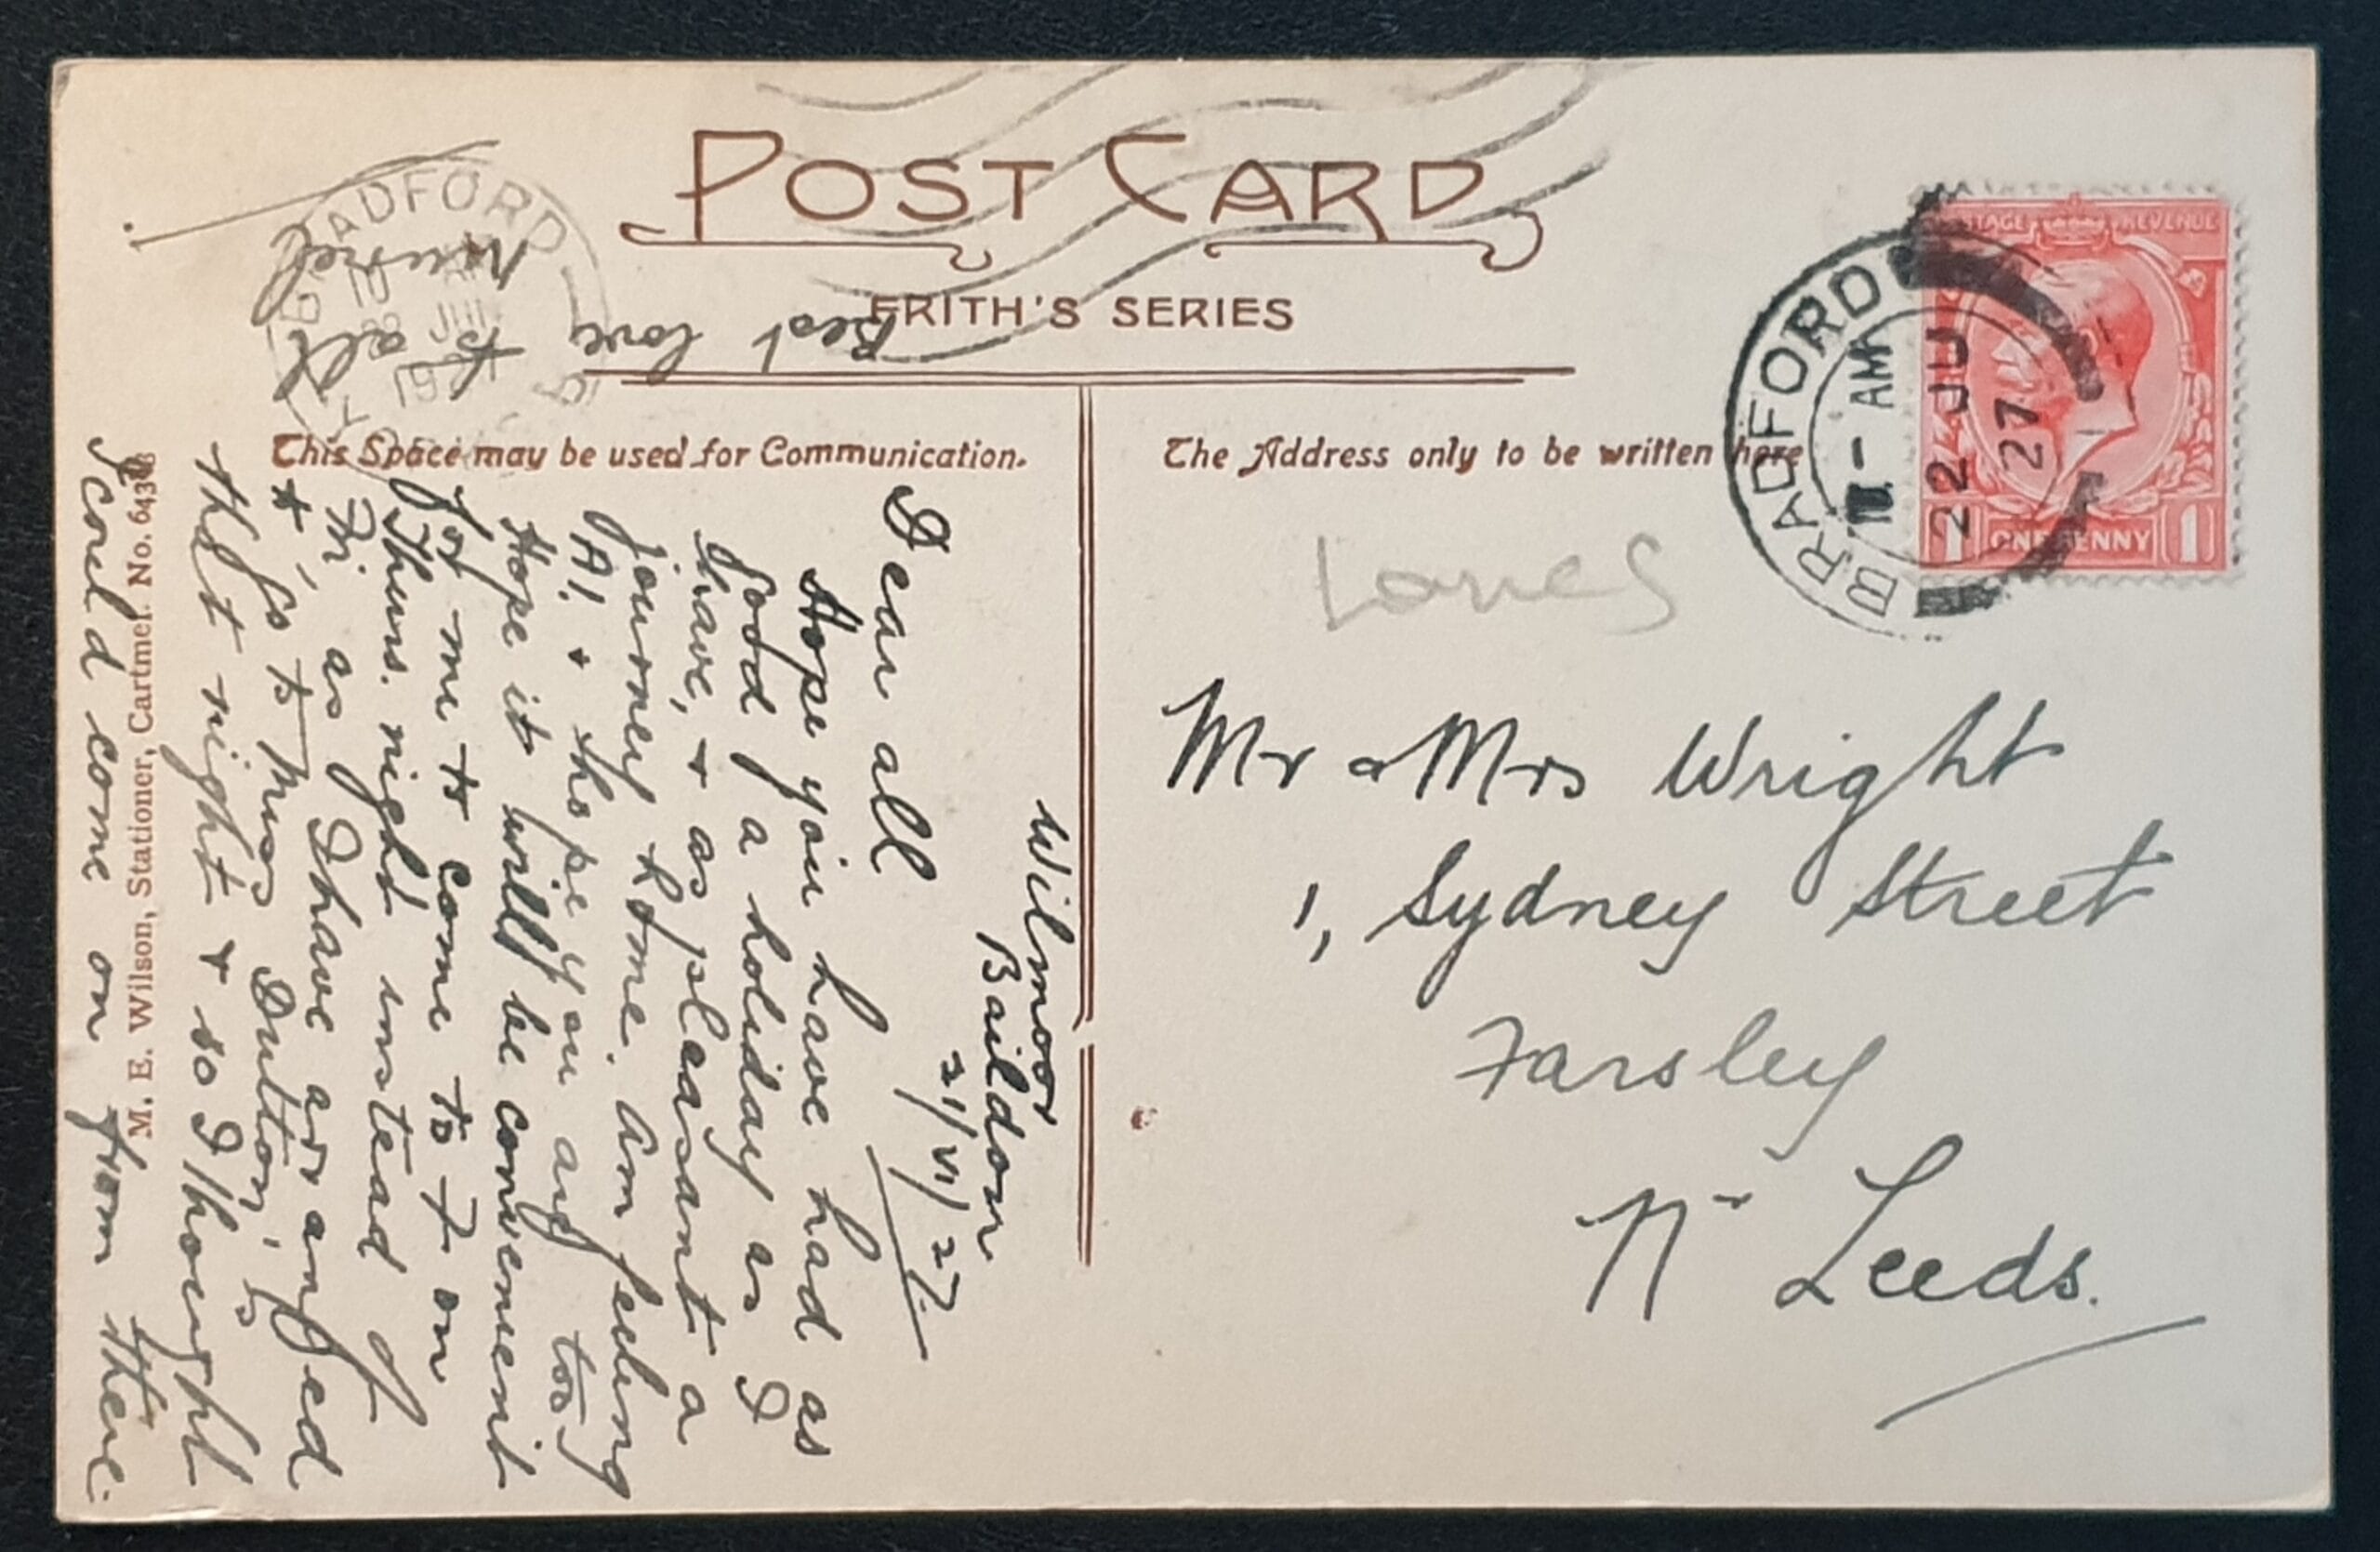 POST CARD
FRITH'S SERIES
This Space may be used for Communication.
The Address only to be written here
BRADFORD
AM
22 JU
27
POSTAGE REVENUE
1 ONE PENNY 1
BRADFORD
Lancs
Mr & Mrs Wright
1, Sydney Street
Farsley
Nr Leeds.
Wilmoor
Baildon
21/VI/27.
Dear all
Hope you have had as
good a holiday as I
have, & as pleasant a
journey home. Am feeling
A1 & hope you are too
Hope it will be convenient
for me to come to F. on
Thurs. night instead of
Fri as I have arranged
to go to Miss Dutton's
that night & so I thought
I could come on from there.
Best love
to all
Muriel
M. E. Wilson, Stationer, Cartmel. No. 6436